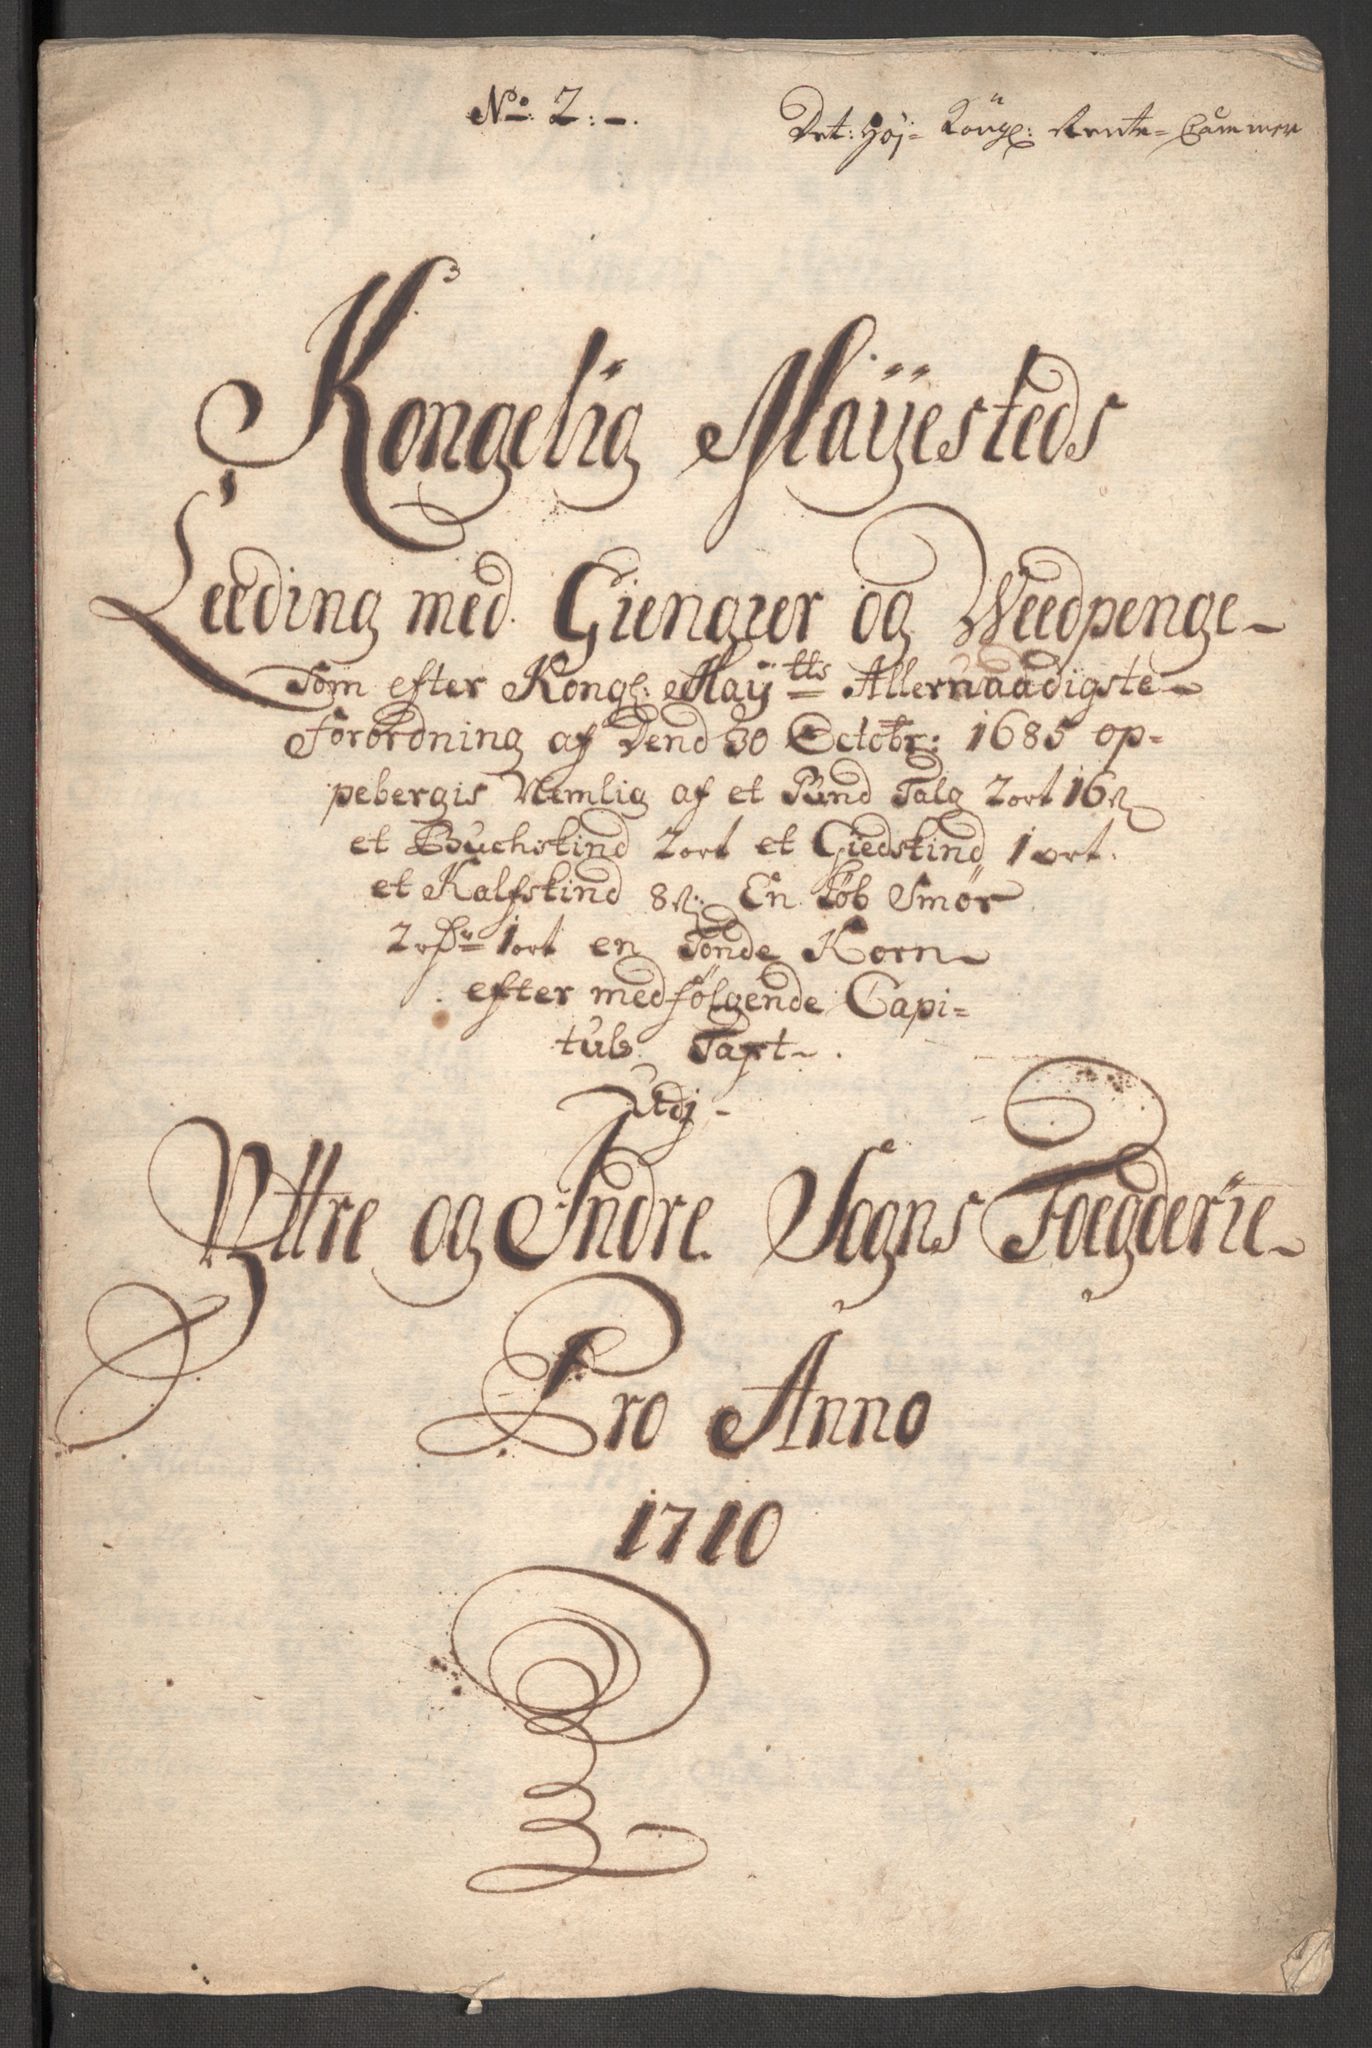 No: 2:-.
Det: Høj= Kongl: Rente= Cammer
Kongelig Mayesteds
Leeding med Giengier og Weedpenge-
Som efter Kongl: Mayˢ tts Allernaadigste-
Forordning af Dend 30 Octobr: 1685 op=
pebergis Nemlig af et Pund Talg 2 ort 16 ß
et Buchskind 2 ort et Giedskind 1 ort.
et Kalfskind 8 ß; En Løb Smør
2 rdr 1 ort en Tønde Korn-
efter medfølgende Capi=
tuls Taxt-.
Udj-
Yttre og Indre Sogns Foegderie-
Pro Anno
1710